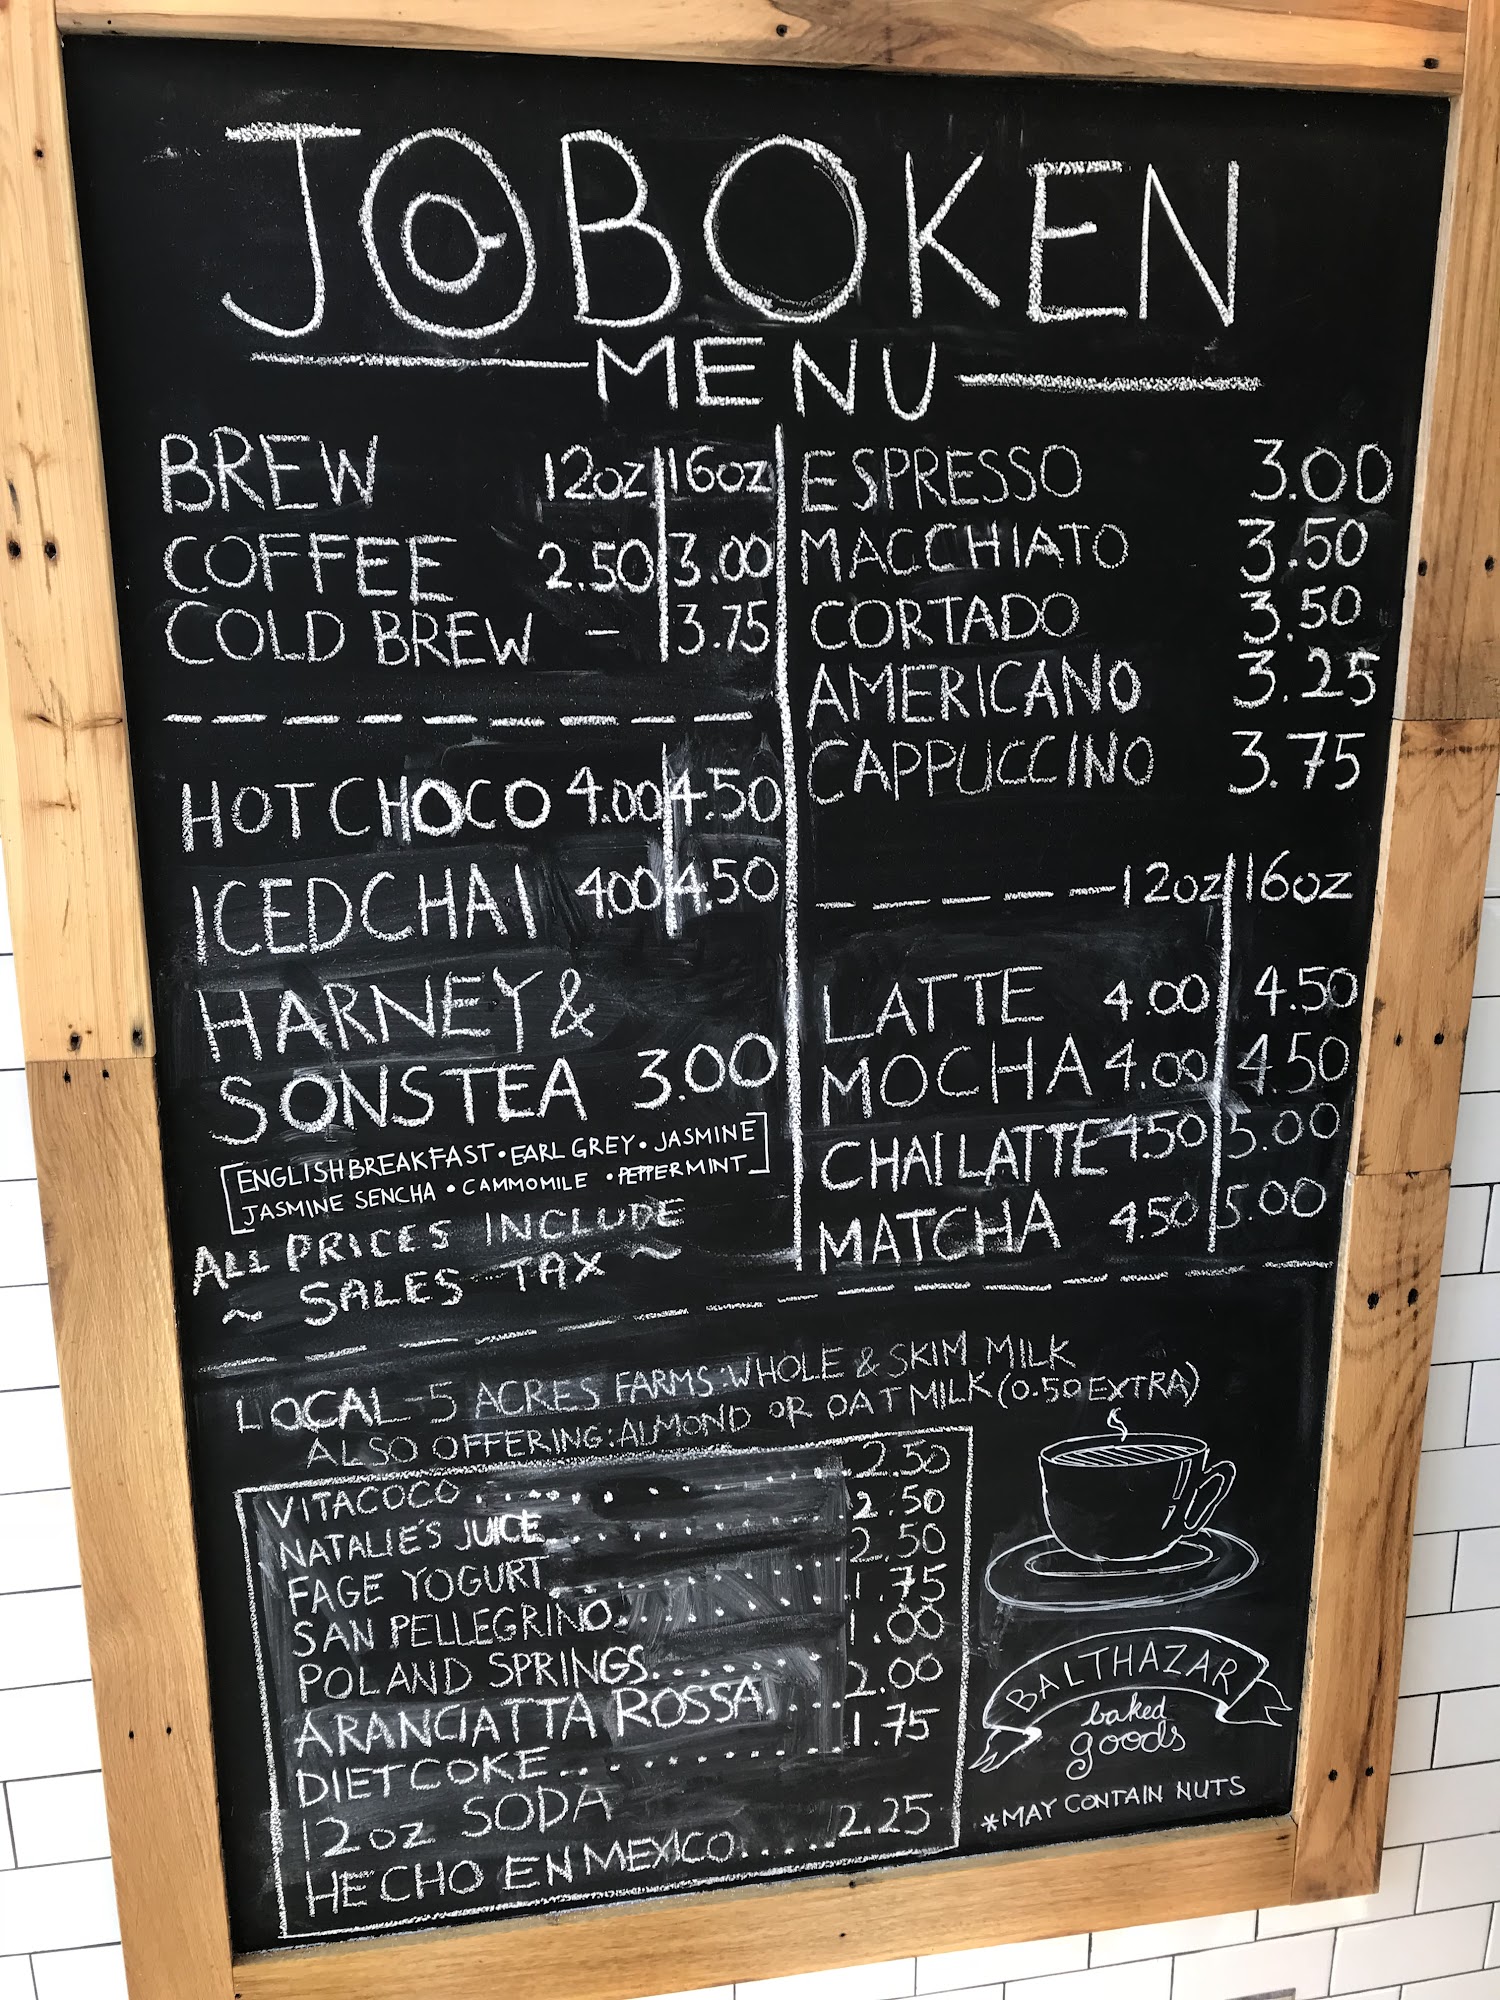 JOBOKEN
MENU
BREW 12oz 16oz
COFFEE 2.50 3.00
COLD BREW – 3.75
HOT CHOCO 4.00 4.50
ICED CHAI 4.00 4.50
HARNEY &
SONS TEA 3.00
[ENGLISH BREAKFAST • EARL GREY • JASMINE
JASMINE SENCHA • CAMMOMILE • PEPPERMINT]
ALL PRICES INCLUDE
~ SALES TAX ~
ESPRESSO 3.00
MACCHIATO 3.50
CORTADO 3.50
AMERICANO 3.25
CAPPUCCINO 3.75
12oz 16oz
LATTE 4.00 4.50
MOCHA 4.00 4.50
CHAI LATTE 4.50 5.00
MATCHA 4.50 5.00
LOCAL - 5 ACRES FARMS: WHOLE & SKIM MILK
ALSO OFFERING: ALMOND OR OAT MILK (0.50 EXTRA)
VITACOCO ........ 2.50
NATALIE'S JUICE ........ 2.50
FAGE YOGURT ........ 2.50
SAN PELLEGRINO ........ 1.75
POLAND SPRINGS ........ 1.00
ARANCIATTA ROSSA .... 2.00
DIET COKE ........ 1.75
12oz SODA
HECHO EN MEXICO ..... 2.25
BALTHAZAR
baked
goods
*MAY CONTAIN NUTS